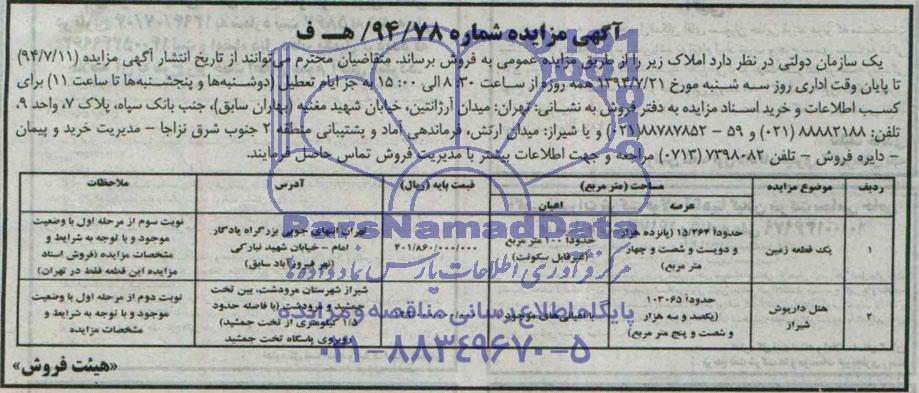 آگهی مزایده شماره ۹۴/۷۸/ هـ ف
یک سازمان دولتی در نظر دارد املاک زیر را از طریق مزایده عمومی به فروش برساند. متقاضیان محترم می‌توانند از تاریخ انتشار آگهی مزایده (۹۴/۷/۱۱)
تا پایان وقت اداری روز سه شنبه مورخ ۱۳۹۴/۷/۲۱ همه روزه از ساعت ۸:۳۰ الی ۱۵:۰۰ به جز ایام تعطیل (دوشنبه‌ها و پنجشنبه‌ها تا ساعت ۱۱) برای
کسب اطلاعات و خرید اسناد مزایده به دفتر فروش به نشانی: تهران: میدان آرژانتین، خیابان شهید مغنیه (بهاران سابق)، جنب بانک سپاه، پلاک ۷، واحد ۹.
تلفن: ۸۸۸۸۲۱۸۸ (۰۲۱) و ۵۹ – ۸۸۷۸۷۸۵۲(۰۲۱) و یا شیراز: میدان ارتش، فرماندهی آماد و پشتیبانی منطقه ۲ جنوب شرق نزاجا – مدیریت خرید و پیمان
– دایره فروش – تلفن ۷۳۹۸۰۸۲ (۰۷۱۳) مراجعه و جهت اطلاعات بیشتر با مدیریت فروش تماس حاصل فرمایند.
ردیف موضوع مزایده مساحت (متر مربع) قیمت پایه (ریال) آدرس ملاحظات
عرصه اعیان
۱ یک قطعه زمین حدودا ۱۵/۲۶۴ (پانزده هزار و دویست و شصت و چهار متر مربع) حدودا ۱۰۰ متر مربع (غیرقابل سکونت) ۳۰۱/۸۶۰/۰۰۰/۰۰۰ تهران انتهای جنوبی بزرگراه یادگار امام – خیابان شهید تبارکی نوبت سوم از مرحله اول با وضعیت موجود و با توجه به شرایط و مشخصات مزایده (فروش اسناد مزایده این قطعه فقط در تهران)
۲ هتل داریوش شیراز حدودا ۱۰۳۰۶۵ (یکصد و سه هزار و شصت و پنج متر مربع) شیراز شهرستان مرودشت، بین تخت جمشید و مرودشت (با فاصله حدود ۱/۵ کیلومتری از تخت جمشید) روبروی پاسگاه تخت جمشید نوبت دوم از مرحله اول با وضعیت موجود و با توجه به شرایط و مشخصات مزایده
«هیئت فروش»
ParsNamadData
مرکز فرآوری اطلاعات پارس نماد داده‌ها
پایگاه اطلاع رسانی مناقصه و مزایده
۰۲۱-۸۸۳۴۹۶۷۰-۵